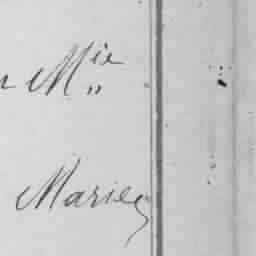 Mie
Marie